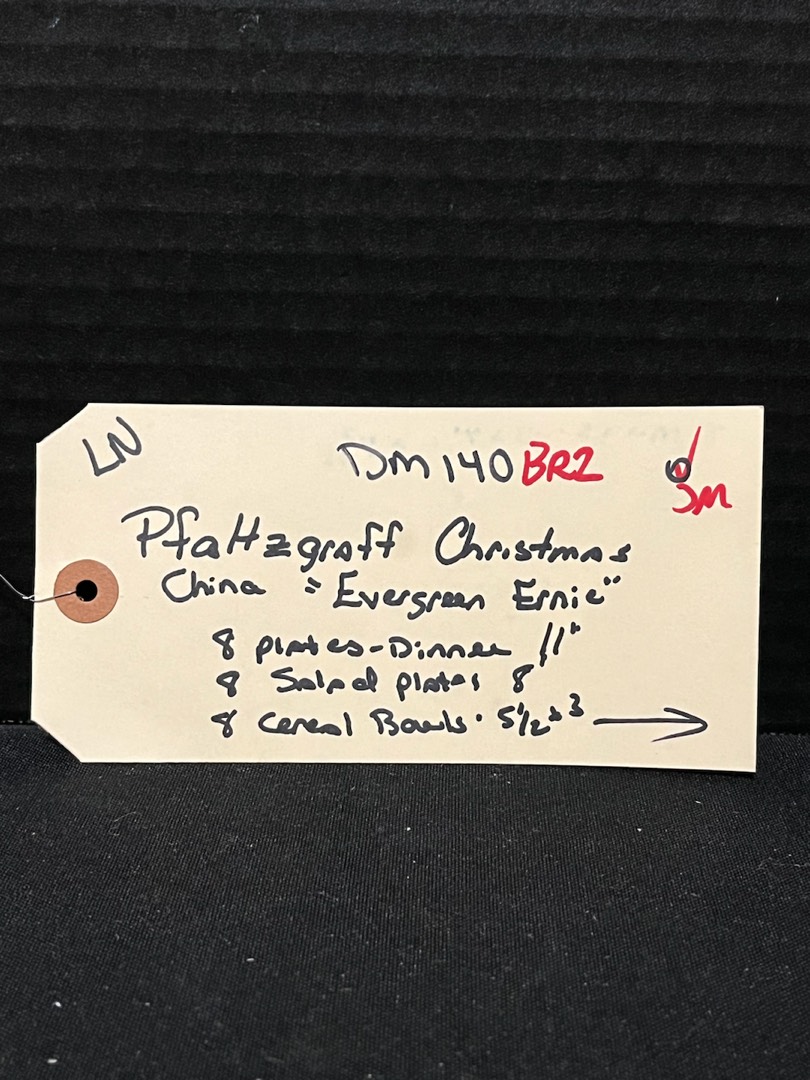 LN
DM 140 BR2
JM
Pfaltzgraff Christmas
China "Evergreen Ernie"
8 plates-Dinner 11"
8 Salad plates 8"
8 Cereal Bowls. 5 1/2 x 3 →